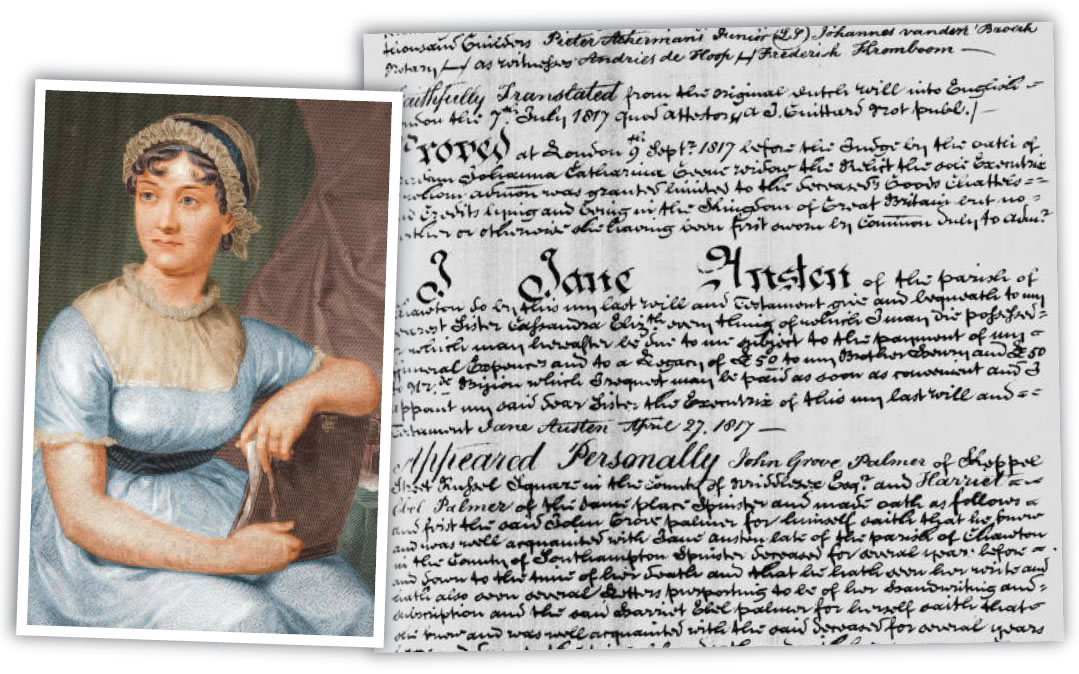 thousand Guilders Pieter Ackermans Junior (LS) Johannes vanden Broeck
Notary as witnesses Andries de Hoop Frederick Kromboom —
aithfully Translated from the original Dutch will into English =
ndon the 7th July 1817 quod Attestor A J. Guittard Not publ. /
roved at London 9th Septr 1817 before the Judge by the oath of
Johanna Catharina widow the Relict the sole Executrix
whom admon was granted limited to the deceaseds Goods Chattels =
Credits lying and being in the Kingdom of Great Britain but no =
rther or otherwise she having been first sworn by Common duly to admr
I Jane Austen of the parish of
hawton do by this my last will and Testament give and bequeath to my
earest Sister Cassandra Elizth every thing of which I may die possessed =
r which may hereafter be due to me subject to the payment of my
uneral Expences and to a Legacy of £50 to my Brother Henry and £50
to Mde Bigion which I request may be paid as soon as convenient and I
ppoint my said dear Sister the Executrix of this my last will and =
estament Jane Austen April 27. 1817 —
Appeared Personally John Grove Palmer of Keppel
Street Russel Square in the County of Middlesex Esqr and Harriet =
Ebel Palmer of the same place Spinster and made oath as follows
and first the said John Grove Palmer for himself saith that he knew
and was well acquainted with Jane Austen late of the parish of Chawton
in the County of Southampton Spinster deceased for several years before
and down to the time of her death and that he hath seen her write and
hath also seen several Letters purporting to be of her Handwriting and =
subscription and the said Harriet Ebel Palmer for herself saith that =
she knew and was well acquainted with the said deceased for several years